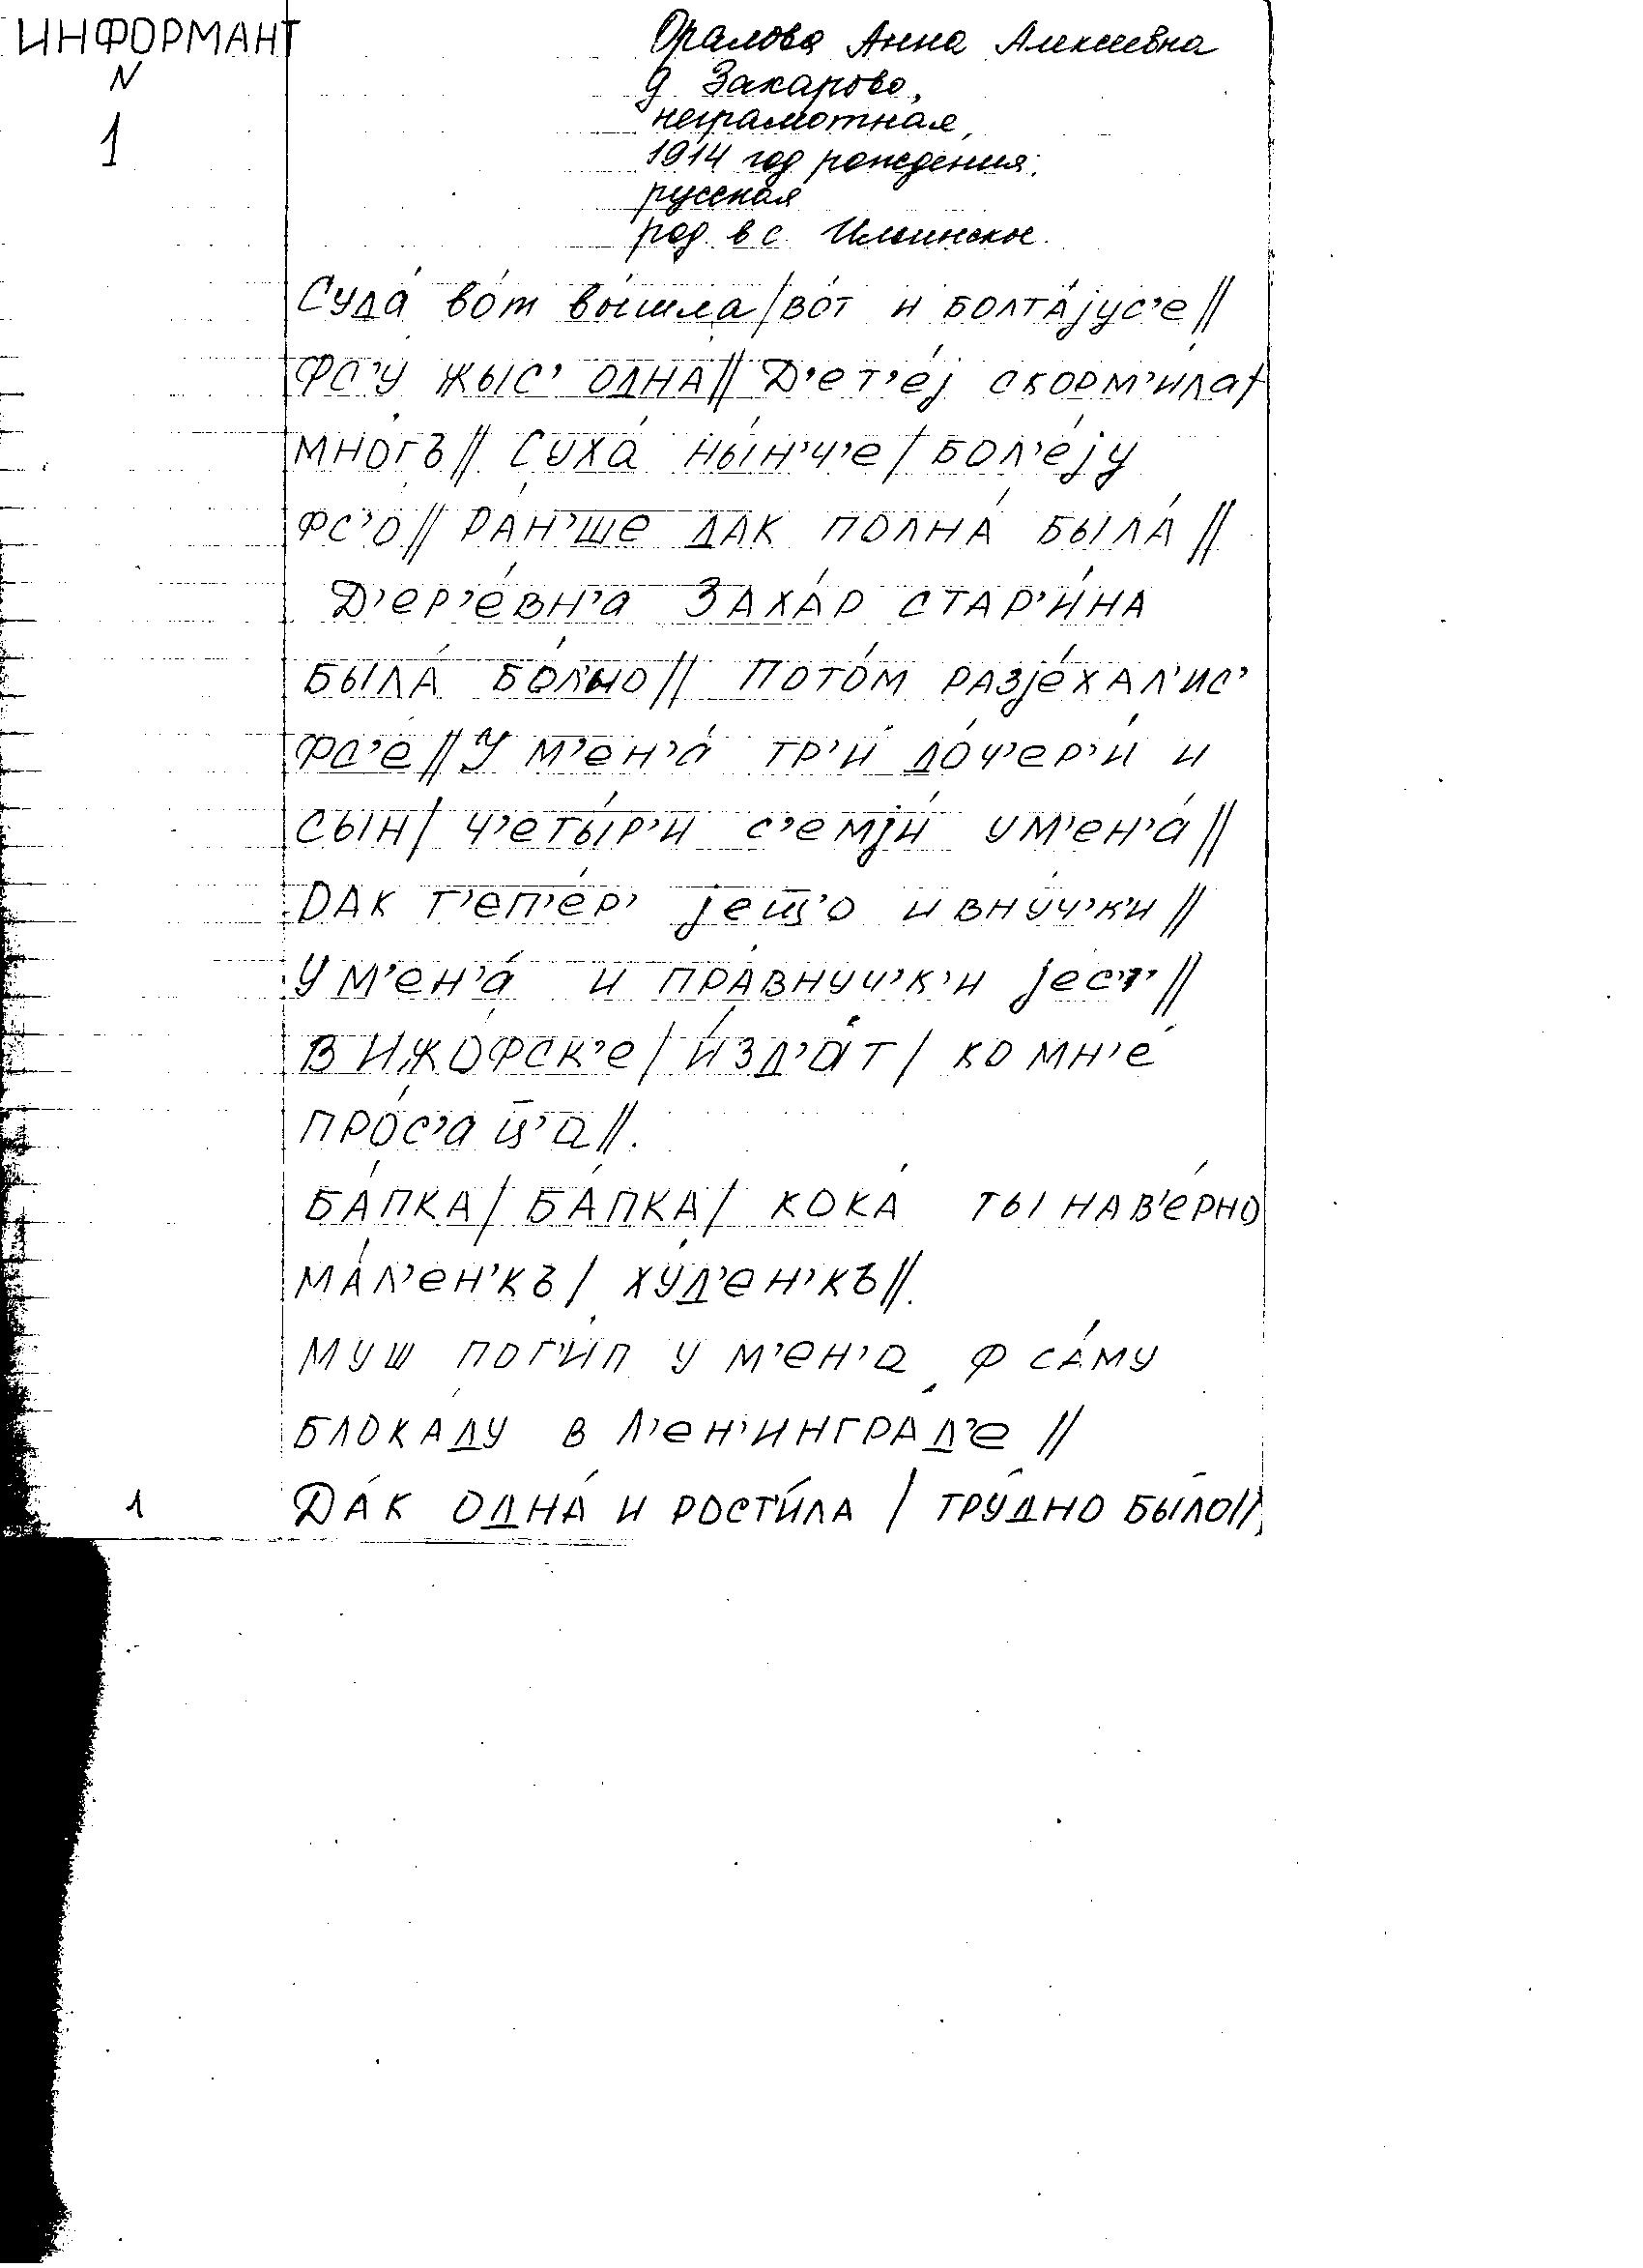 ИНФОРМАНТ
N
1
Оралова Анна Алексеевна
д. Захарово,
неграмотная,
1914 год рождения;
русская
род. в с. Ильинское.
Суда́ во́т вы́шла/во́т и болта́jус'е//
Фс'у жыс' одна// Д'ет'е́j скорм'и́ла/
мно́гъ// Суха́ ны́н'ч'е/ бол'е́jу
фс'о// ра́н'ше дак полна́ была́//
Д'ер'е́вн'а Заха́р стар'и́на
была́ бо́л'но// пото́м разjе́хал'ис'
фс'е// У м'ен'а́ тр'и́ до́ч'ер'и́ и
сын/ ч'еты́р'и с'емjи́ у м'ен'а́//
Dак т'еп'е́р' jещ̅'о и вну́ч'к'и//
У м'ен'а́ и пра́внуч'к'и jес'т'//
в Ижо́фск'е/ и́зд'а́т/ ко мн'е́
про́с'а ц̅'а//.
ба́пка/ ба́пка/ кока́ ты нав'е́рно
ма́л'ен'къ/ ху́д'ен'къ//.
муш пог'и́п у м'ен'а ф са́му
блока́ду в Л'ен'ингра́д'е //
Да́к одна́ и рост'и́ла / тру́дно бы́ло//.
1